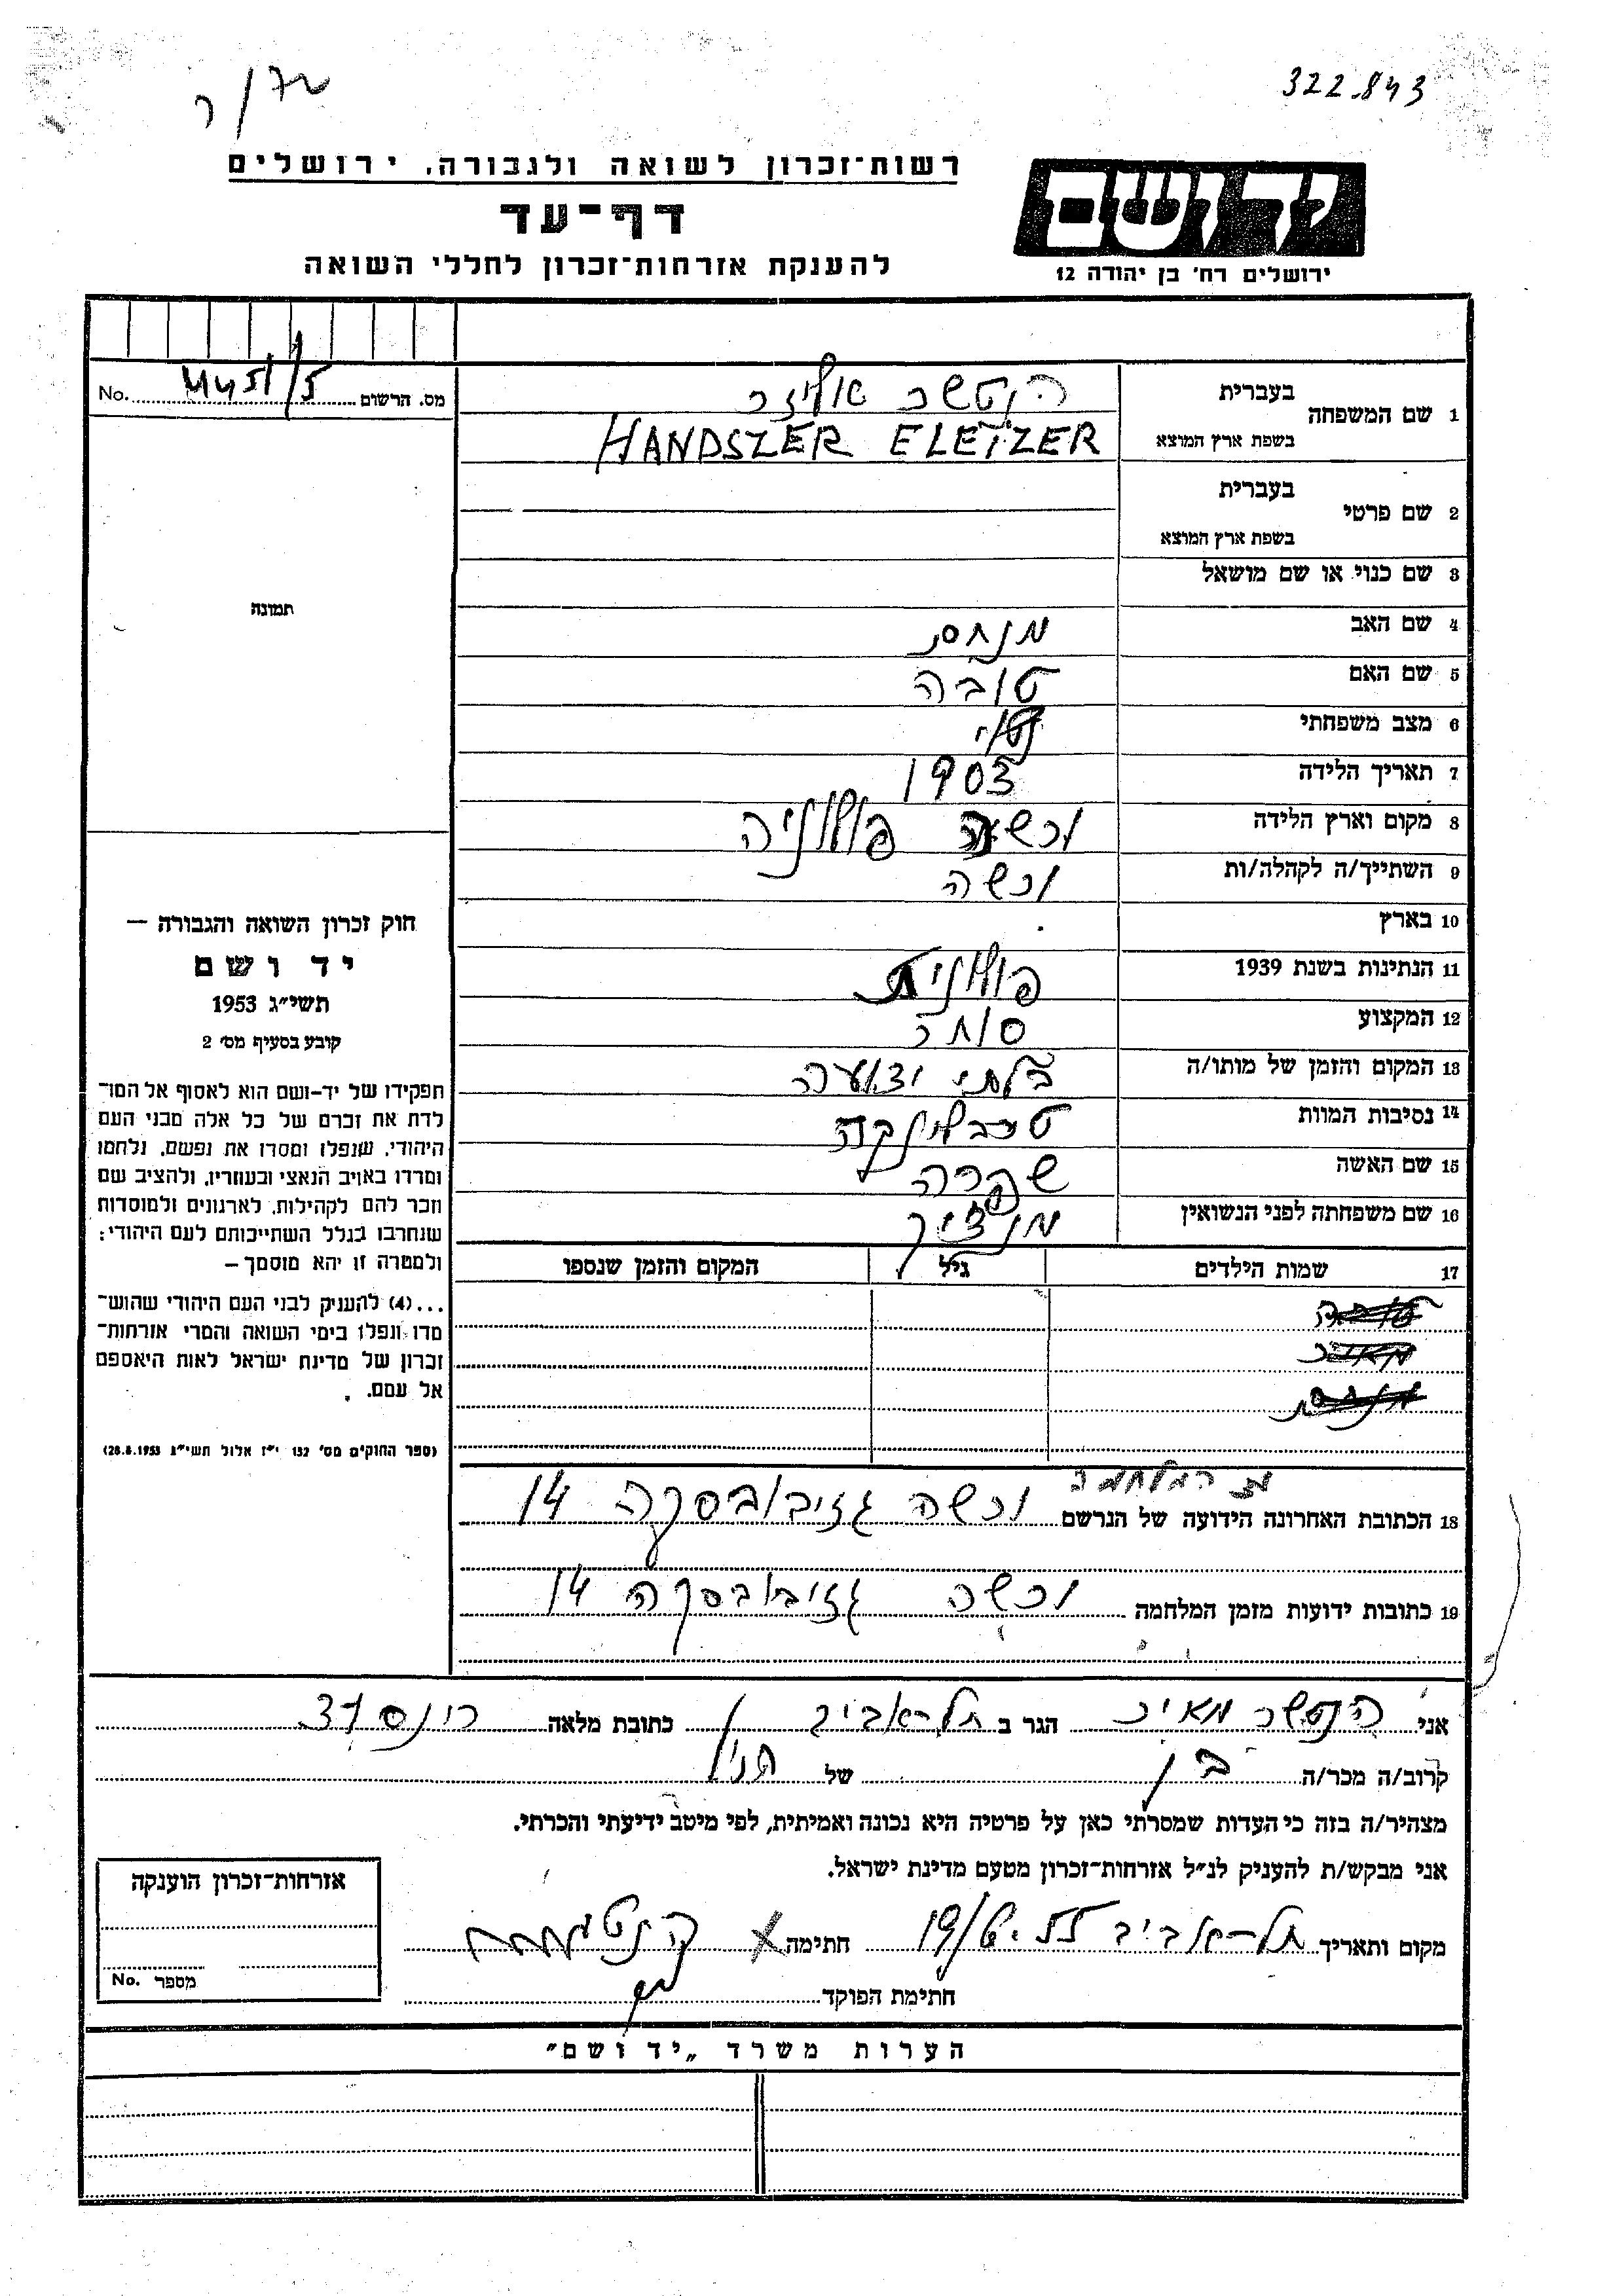 322.843
רשות-זכרון לשואה ולגבורה, ירושלים
דף-עד
להענקת אזרחות-זכרון לחללי השואה
יד ושם
ירושלים רח' בן יהודה 12
מס. הרשום No.
1 שם המשפחה בעברית הנטשר אליזר
בשפת ארץ המוצא HANDSZER ELEIZER
2 שם פרטי בעברית
בשפת ארץ המוצא
3 שם כנוי או שם מושאל
4 שם האב מנחם
5 שם האם טובה
6 מצב משפחתי נשוי
7 תאריך הלידה 1903
8 מקום וארץ הלידה ורשה פולוניה
9 השתייך/ה לקהלה/ות ורשה
10 בארץ
11 הנתינות בשנת 1939 פולונית
12 המקצוע סוחר
13 המקום והזמן של מותו/ה בלתי ידוע
14 נסיבות המוות טרבלינקה
15 שם האשה שפרה
16 שם משפחתה לפני הנשואין
17 שמות הילדים גיל המקום והזמן שנספו
18 הכתובת האחרונה הידועה של הנרשם ורשה גזיבובסקה 14
19 כתובות ידועות מזמן המלחמה ורשה גזיבובסקה 14
תמונה
חוק זכרון השואה והגבורה —
יד ושם
תשי"ג 1953
קובע בסעיף מס' 2
תפקידו של יד-ושם הוא לאסוף אל המו־
לדת את זכרם של כל אלה מבני העם
היהודי, שנפלו ומסרו את נפשם, נלחמו
ומרדו באויב הנאצי ובעוזריו, ולהציב שם
וזכר להם לקהילות, לארגונים ולמוסדות
שנחרבו בגלל השתייכותם לעם היהודי;
ולמטרה זו יהא מוסמך —
...(4) להעניק לבני העם היהודי שהוש־
מדו ונפלו בימי השואה והמרי אזרחות־
זכרון של מדינת ישראל לאות היאספם
אל עמם.
(ספר החוקים מס' 132 י"ז אלול תשי"ג 28.8.1953)
אני הנטשר מאיר הגר ב תל-אביב כתובת מלאה
קרוב/ה מכר/ה בן של הנ"ל
מצהיר/ה בזה כי העדות שמסרתי כאן על פרטיה היא נכונה ואמיתית, לפי מיטב ידיעתי והכרתי.
אני מבקש/ת להעניק לנ"ל אזרחות-זכרון מטעם מדינת ישראל.
מקום ותאריך תל-אביב חתימה
חתימת הפוקד
אזרחות-זכרון הוענקה
מספר No.
הערות משרד "יד ושם"